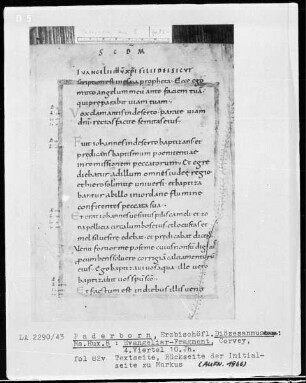 S C D M
IVANGELII IHU XPI FILII DEI SICUT
scriptum est in esaia propheta. Ecce ego
mitto angelum meum ante faciem tuam
qui preparabit uiam tuam.
Vox clamantis in deserto. parate uiam
dni. rectas facite semitas eius.
Fuit iohannes in deserto baptizans et
predicans baptismum poenitentiae
in remissionem peccatorum. Et egre
diebatur ad illum omnis iudeae regio
et hierosolimitae uniuersi. et baptiza
bantur ab illo in iordane flumine
confitentes peccata sua.
Et erat iohannes uestitus pilis cameli. et zo
na pellicia circa lumbos eius. et locustas et
mel siluestre edebat. et predicabat dicens.
Venit fortior me post me cuius non su dignus
procumbens soluere corrigiam calciamentoru
eius. Ego baptizaui uos aqua. ille uero
baptizabit uos spu sco.
Et factum est in diebus illis uenit
LA 2290/43 Paderborn, Erzbischöfl. Diözesanmuseum:
Ms. Hux. 8 : Evangeliar-Fragment, Corvey,
4. Viertel 10. Jh.
fol 02v Textseite, Rückseite der Initial-
seite zu Markus (AUFN. 1966)